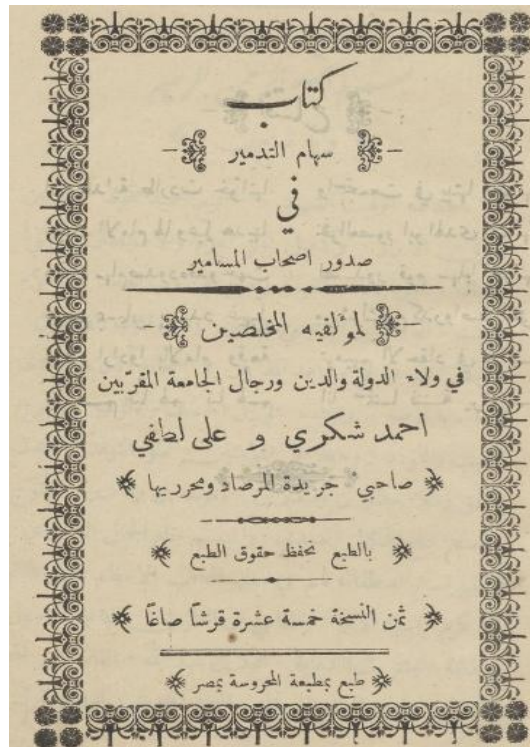 كتاب
سهام التدمير
في
صدور اصحاب المسامير
لمؤلفيه المخلصين
في ولاء الدولة والدين ورجال الجامعة المقرّبين
احمد شكري و على لطفي
صاحبي جريدة المرصاد ومحرريها
بالطبع تحفظ حقوق الطبع
ثمن النسخة خمسة عشرة قرشًا صاغًا
طبع بمطبعة المحروسة بمصر